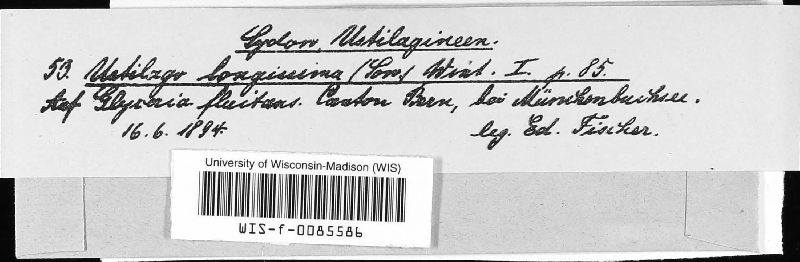 Sydow, Ustilagineen.
53. Ustilago longissima (Sow.) Wint. I. p. 85.
Auf Glyceria fluitans. Canton Bern, bei Münchenbuchsee.
16. 6. 1894. leg. Ed. Fischer.
University of Wisconsin-Madison (WIS)
WIS-f-0085586